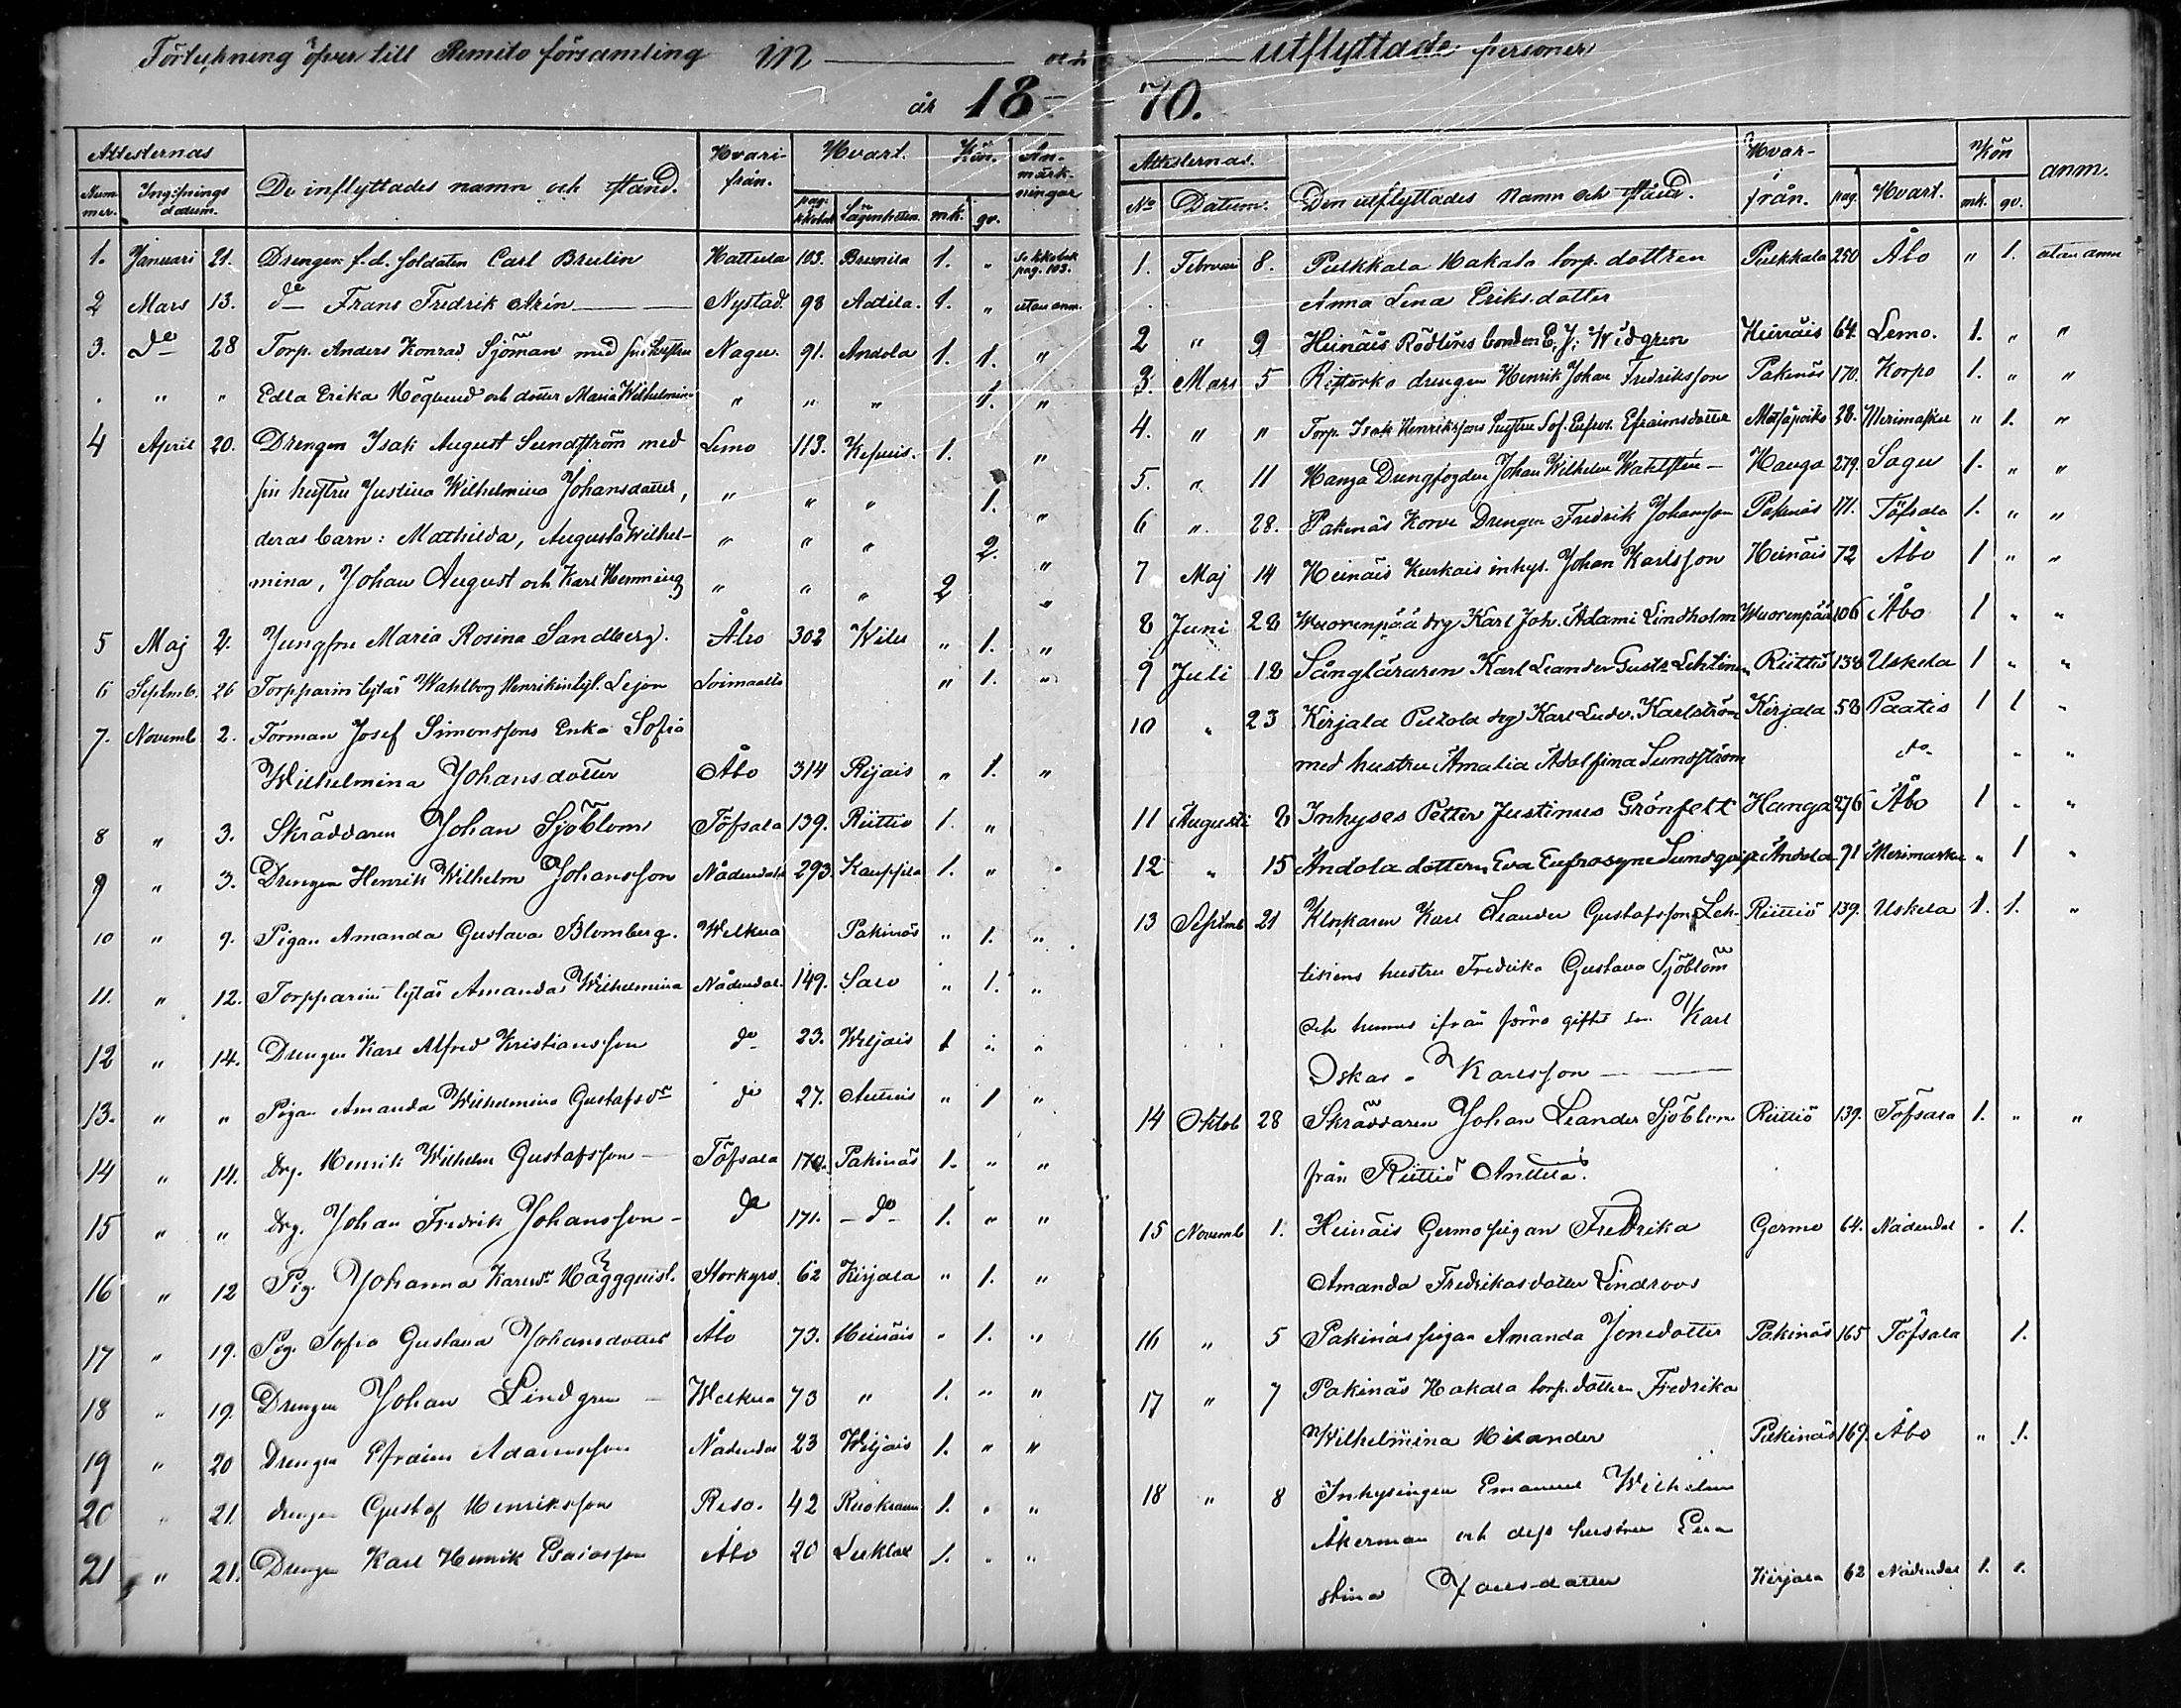 Förteckning öfver till Rimito församling in och
år 18
Attesternas De inflyttades namn och stånd. Hvarifrån. Hvart. Kön. Anmärkningar
Nummer. Ingifnings datum. pag. Lägenheten. mk. qv.
1. Januari 21. Drengen f.d. soldaten Carl Brulin Hattula 103. 1. „ pag. 103.
2 Mars 13. do Frans Fredrik Arén Nystad 98 Aatila. 1. „ utan anm.
3. do 28 Torp. Anders Konrad Sjöman med hustru Nagu. 91. Andola 1. 1. „
„ „ Edla Erika Högvund och dotter Maria Wilhelmina „ „ „ 1. „
4 April 20. Drengen Isak August Sundström med Lemo 113. 1. „
sin hustru Justina Wilhelmina Johansdotter, „ „ „ 1. „
deras barn: Mathilda, Augusta Wilhel- „ „ „ 2. „
mina, Johan August och Karl Henning „ „ „ 2 „
5 Maj 2. Jungfru Maria Rosina Sandberg. Åbo 302 Wilu „ 1. „
6 Septmb. 26 Torpparin tytär Wahlborg Lejon Loimaalta „ 1. „
7. Novemb 2. Torman Josef Simonssons Enka Sofia
Wilhelmina Johansdotter Åbo 314 Rijais „ 1. „
8 „ 3. Skräddaren Johan Sjöblom Töfsala 139. Riittiö 1. „
9 „ 3. Drengen Henrik Wilhelm Johansson Nådendal 293. Kauppila 1. „
10 „ 9. Pigan Amanda Gustava Blomberg. Welkua Pakinäs „ 1. „
11. „ 12. Torpparin tytär Amanda Wilhelmina Nådendal. 149. Salo „ 1. „
12 „ 14. Drengen Karl Alfred Kristiansson do 23. Wiljais 1 „ „
13. „ „ Pigan Amanda Wilhelmina Gustafsdr do 27. „ 1 „
14 „ 14. Drg. Henrik Wilhelm Gustafsson Töfsala 170. Pakinäs 1. „ „
15 „ „ Drg. Johan Fredrik Johansson do 171. do 1. „ „
16 „ 12 Pig. Johanna Karlsdr Häggquist. Storkyro. 62 Kirjala „ 1. „
17 „ 19. Pig. Sofia Gustava Johansdotter Åbo 73. Heinäis „ 1. „
18 „ 19. Drengen Johan Lindgren Welkua 73 „ 1. „ „
19 „ 20 Drengen Efraim Adamsson Nådendal 23 Wiljais 1. „ „
20 „ 21. drengen Gustaf Henriksson Reso. 42 1. „ „
21 „ 21. Drengen Karl Henrik Esaiasson Åbo 20 1. „ „
utflyttade personer
70.
Attesternas. Den utflyttades Namn och stånd. Hvarifrån. pag. Hvart. Kön anm.
No Datum. mk. qv.
1. Februari 8. Pukkala Hakala torp. dottren Pukkala 250 Åbo „ 1. utan anm
Anna Lena Eriksdotter
2 „ 9 Heinäis Rödlins bonden E. J. Widgren Heinäis 64. Lemo. 1. „ „
3. Mars 5 drengen Henrik Johan Fredriksson Pakinäs 170. Korpo 1. „ „
4. „ „ Torp. Isak Henrikssons hustru Sof. Eufros. Efraimsdotter 28. Merimasku „ 1. „
5. „ 11 Hanga Drengfogden Johan Wilhelm Wahlsten Hanga 279. Sagu 1. „ „
6 „ 28. Pakinäs Korve Drengen Fredrik Johansson Pakinäs 171. Töfsala 1. „ „
7 Maj 14 Heinäis Kurkais inhys. Johan Karlsson Heinäis 72 Åbo 1 „ „
8 Juni 28 Wuorenpää drg Karl Joh. Adami Lindholm Wuorenpää 106 Åbo 1 „ „
9 Juli 18 Sångläraren Karl Leander Gustr Lehtinen Riittiö 138 Uskela 1 „ „
10 „ 23 Kirjala Pietola drg Karl Ludv. Karlström Kirjala 58 Paatis 1 1 „
med hustru Amalia Adolfina Sundström do „ „
11 Augusti 8 Inhyses Petter Justinus Grönfelt Hanga 276 Åbo 1 „ „
12 „ 15 Andola dottern Eva Eufrosyne Sundqvist Andola 91 Merimasku „ 1 „
13 Septmb 21 Klockaren Karl Leander Gustafsson Leh- Riittiö 139. Uskela 1. 1. „
tinens hustru Fredrika Gustava Sjöblom
och hennes ifrån förra giftet son Karl
Oskar Karlsson
14 Oktob 28 Skräddaren Johan Leander Sjöblom Riittiö 139. Töfsala 1. „ „
från Riittiö Anttila.
15 Novemb 1. Heinäis Germo pigan Fredrika Germo 64. Nådendal „ 1.
Amanda Fredrikasdotter Lindroos
16 „ 5 Pakinäs pigan Amanda Jonedotter Pakinäs 165 Töfsala 1.
17 „ 7 Pakinäs Hakala torp. dottren Fredrika
Wilhelmina Helander Pakinäs 169. Åbo „ 1.
18 „ 8 Inhysingen Emanuel Wilhelm
Åkerman och dess hustru Eva
stina Joelsdotter Kirjala 62 Nådendal 1. 1.